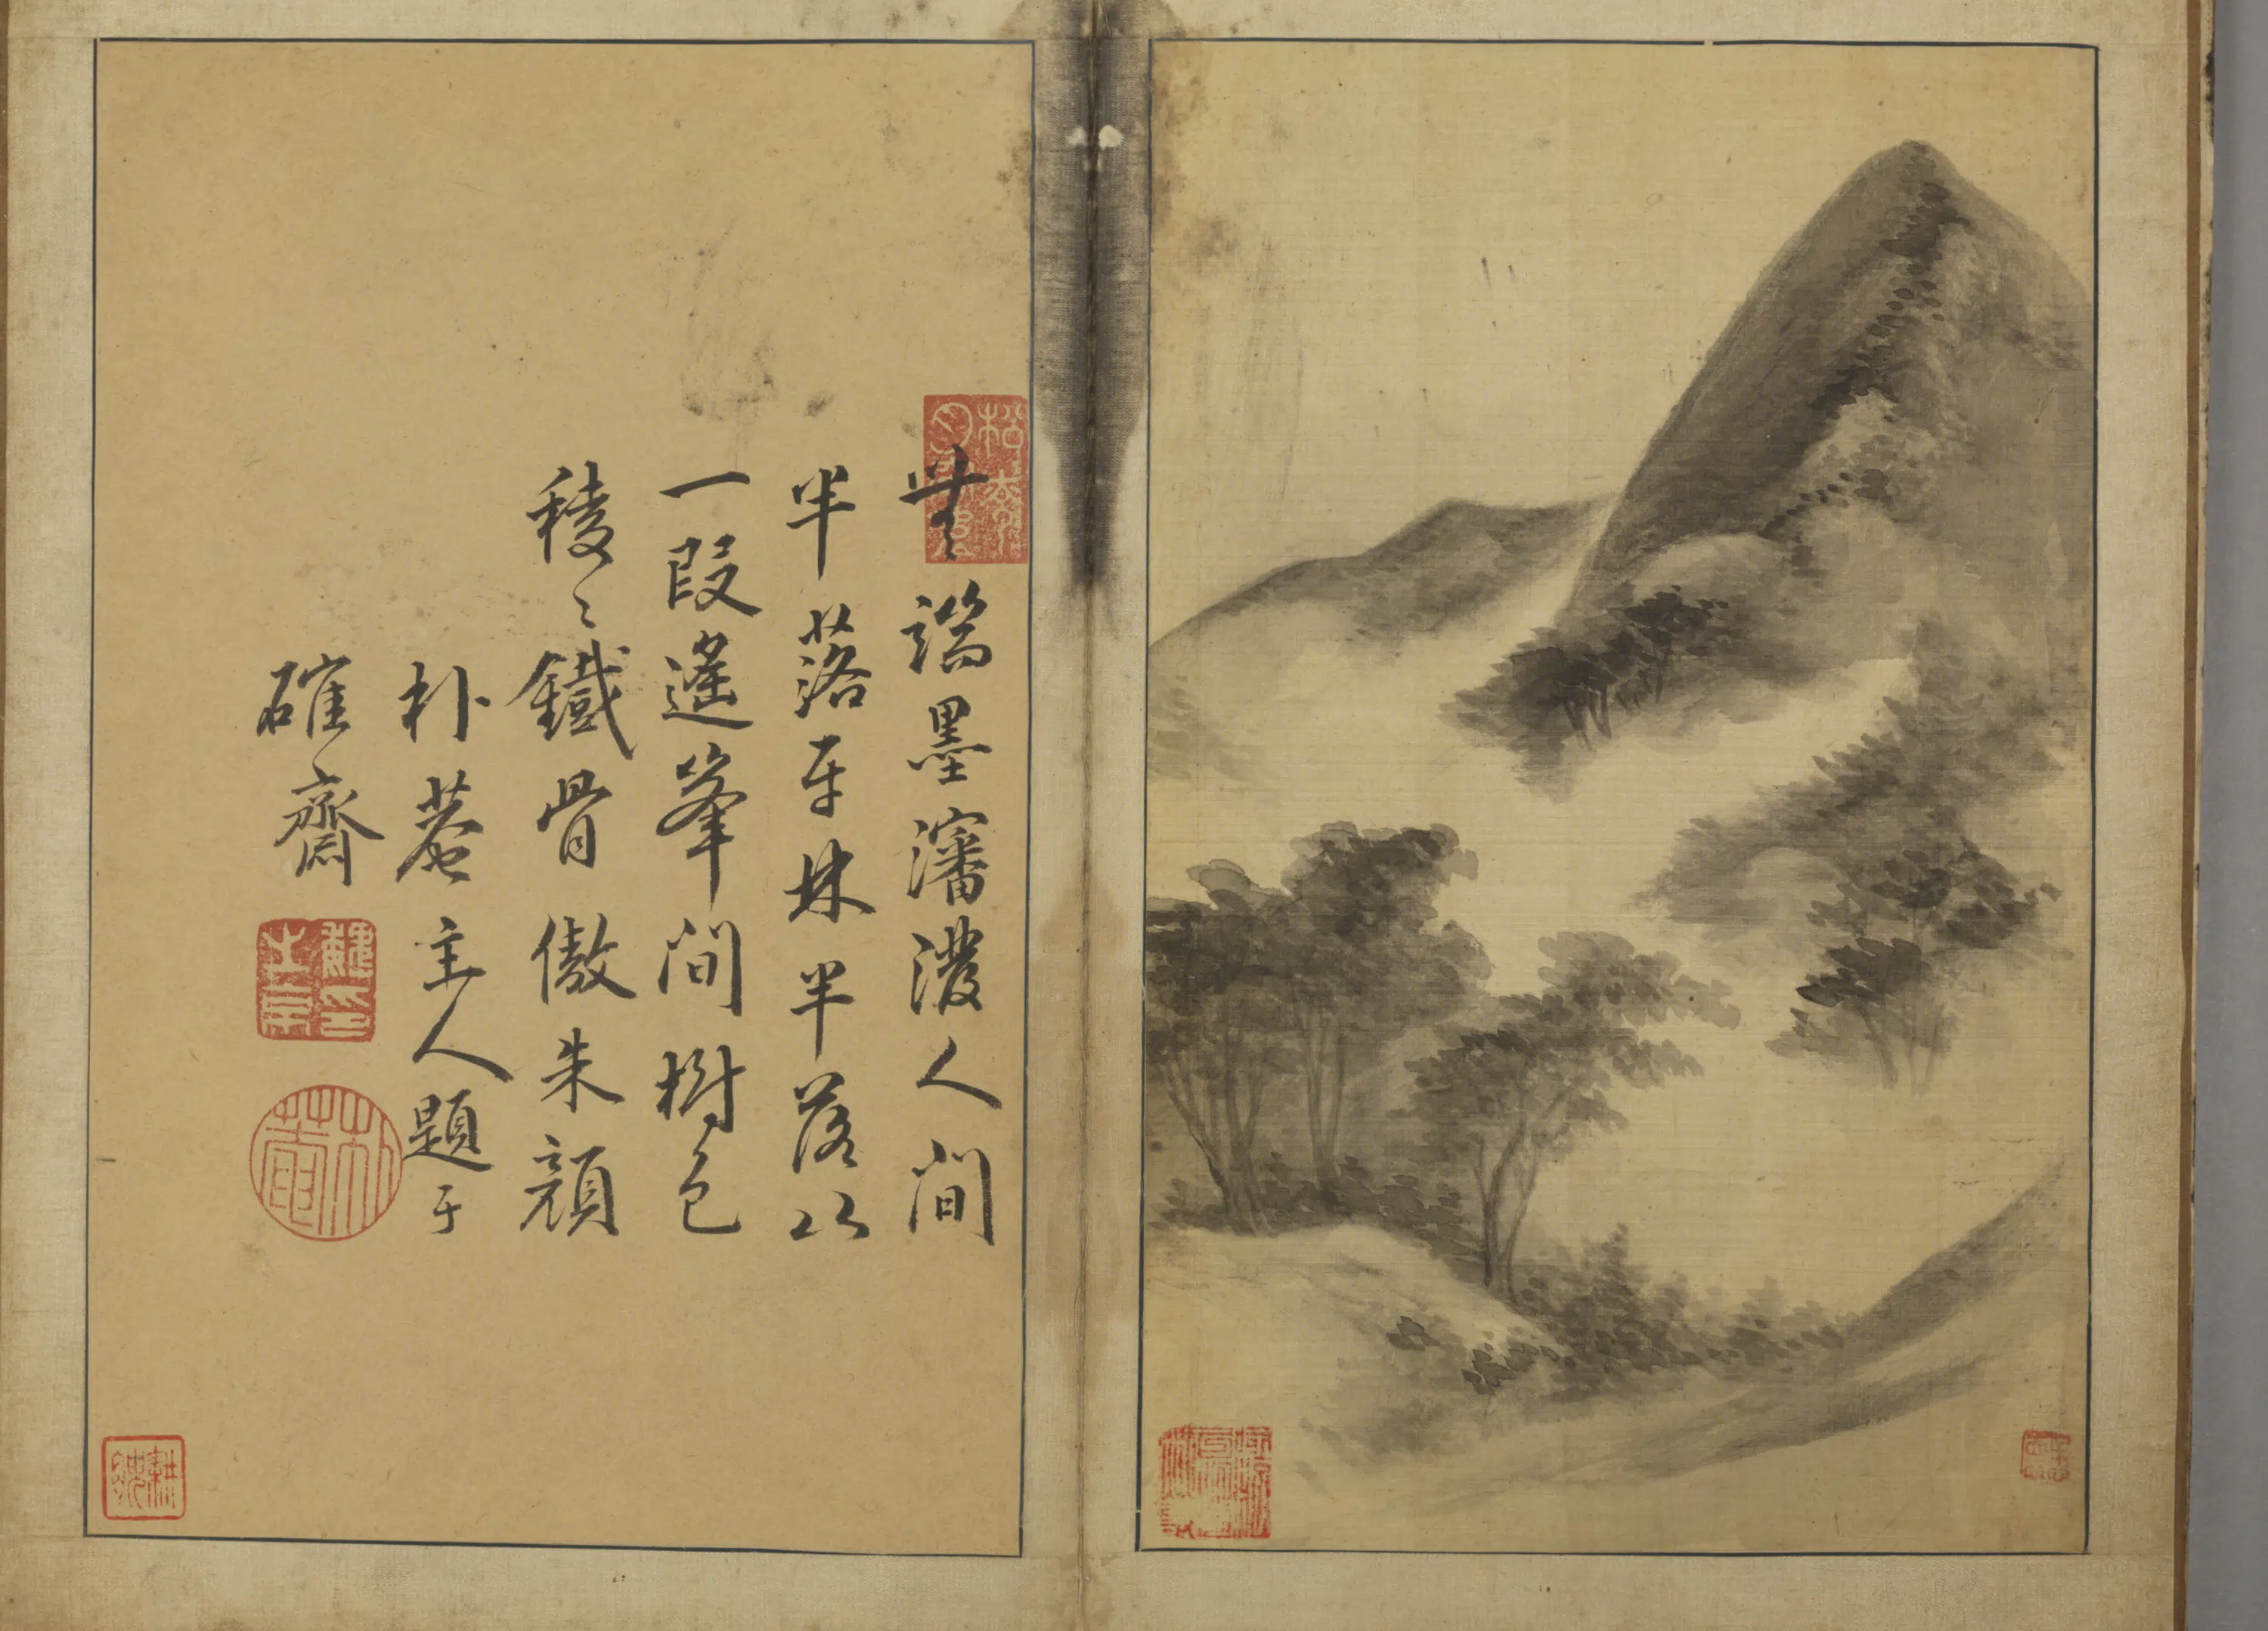 無端墨瀋潑人間
半落平林半落山
一段遙峯間樹色
稜〻鐵骨傲朱顏
朴菴主人題于
確齋
朴菴